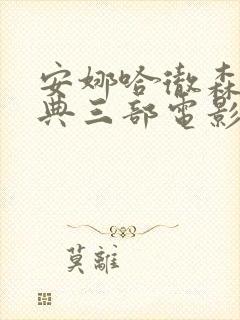 安娜哈徹森
典三部電影
莫離